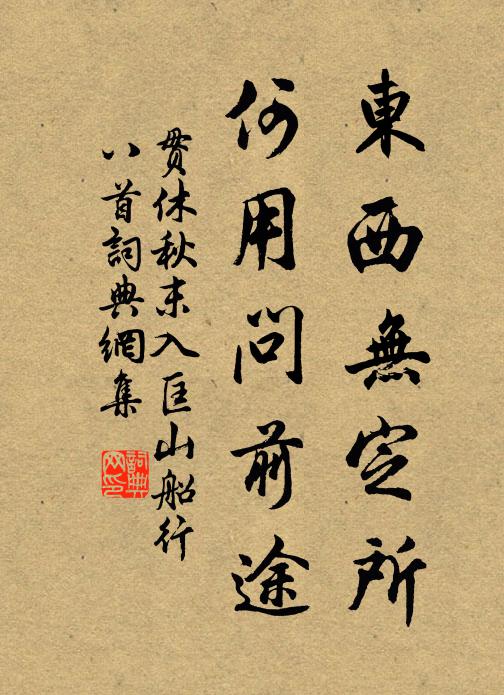 東西無定所
何用問前途
貫休秋末入匡山船行
八首詞典網集
詞典
网印